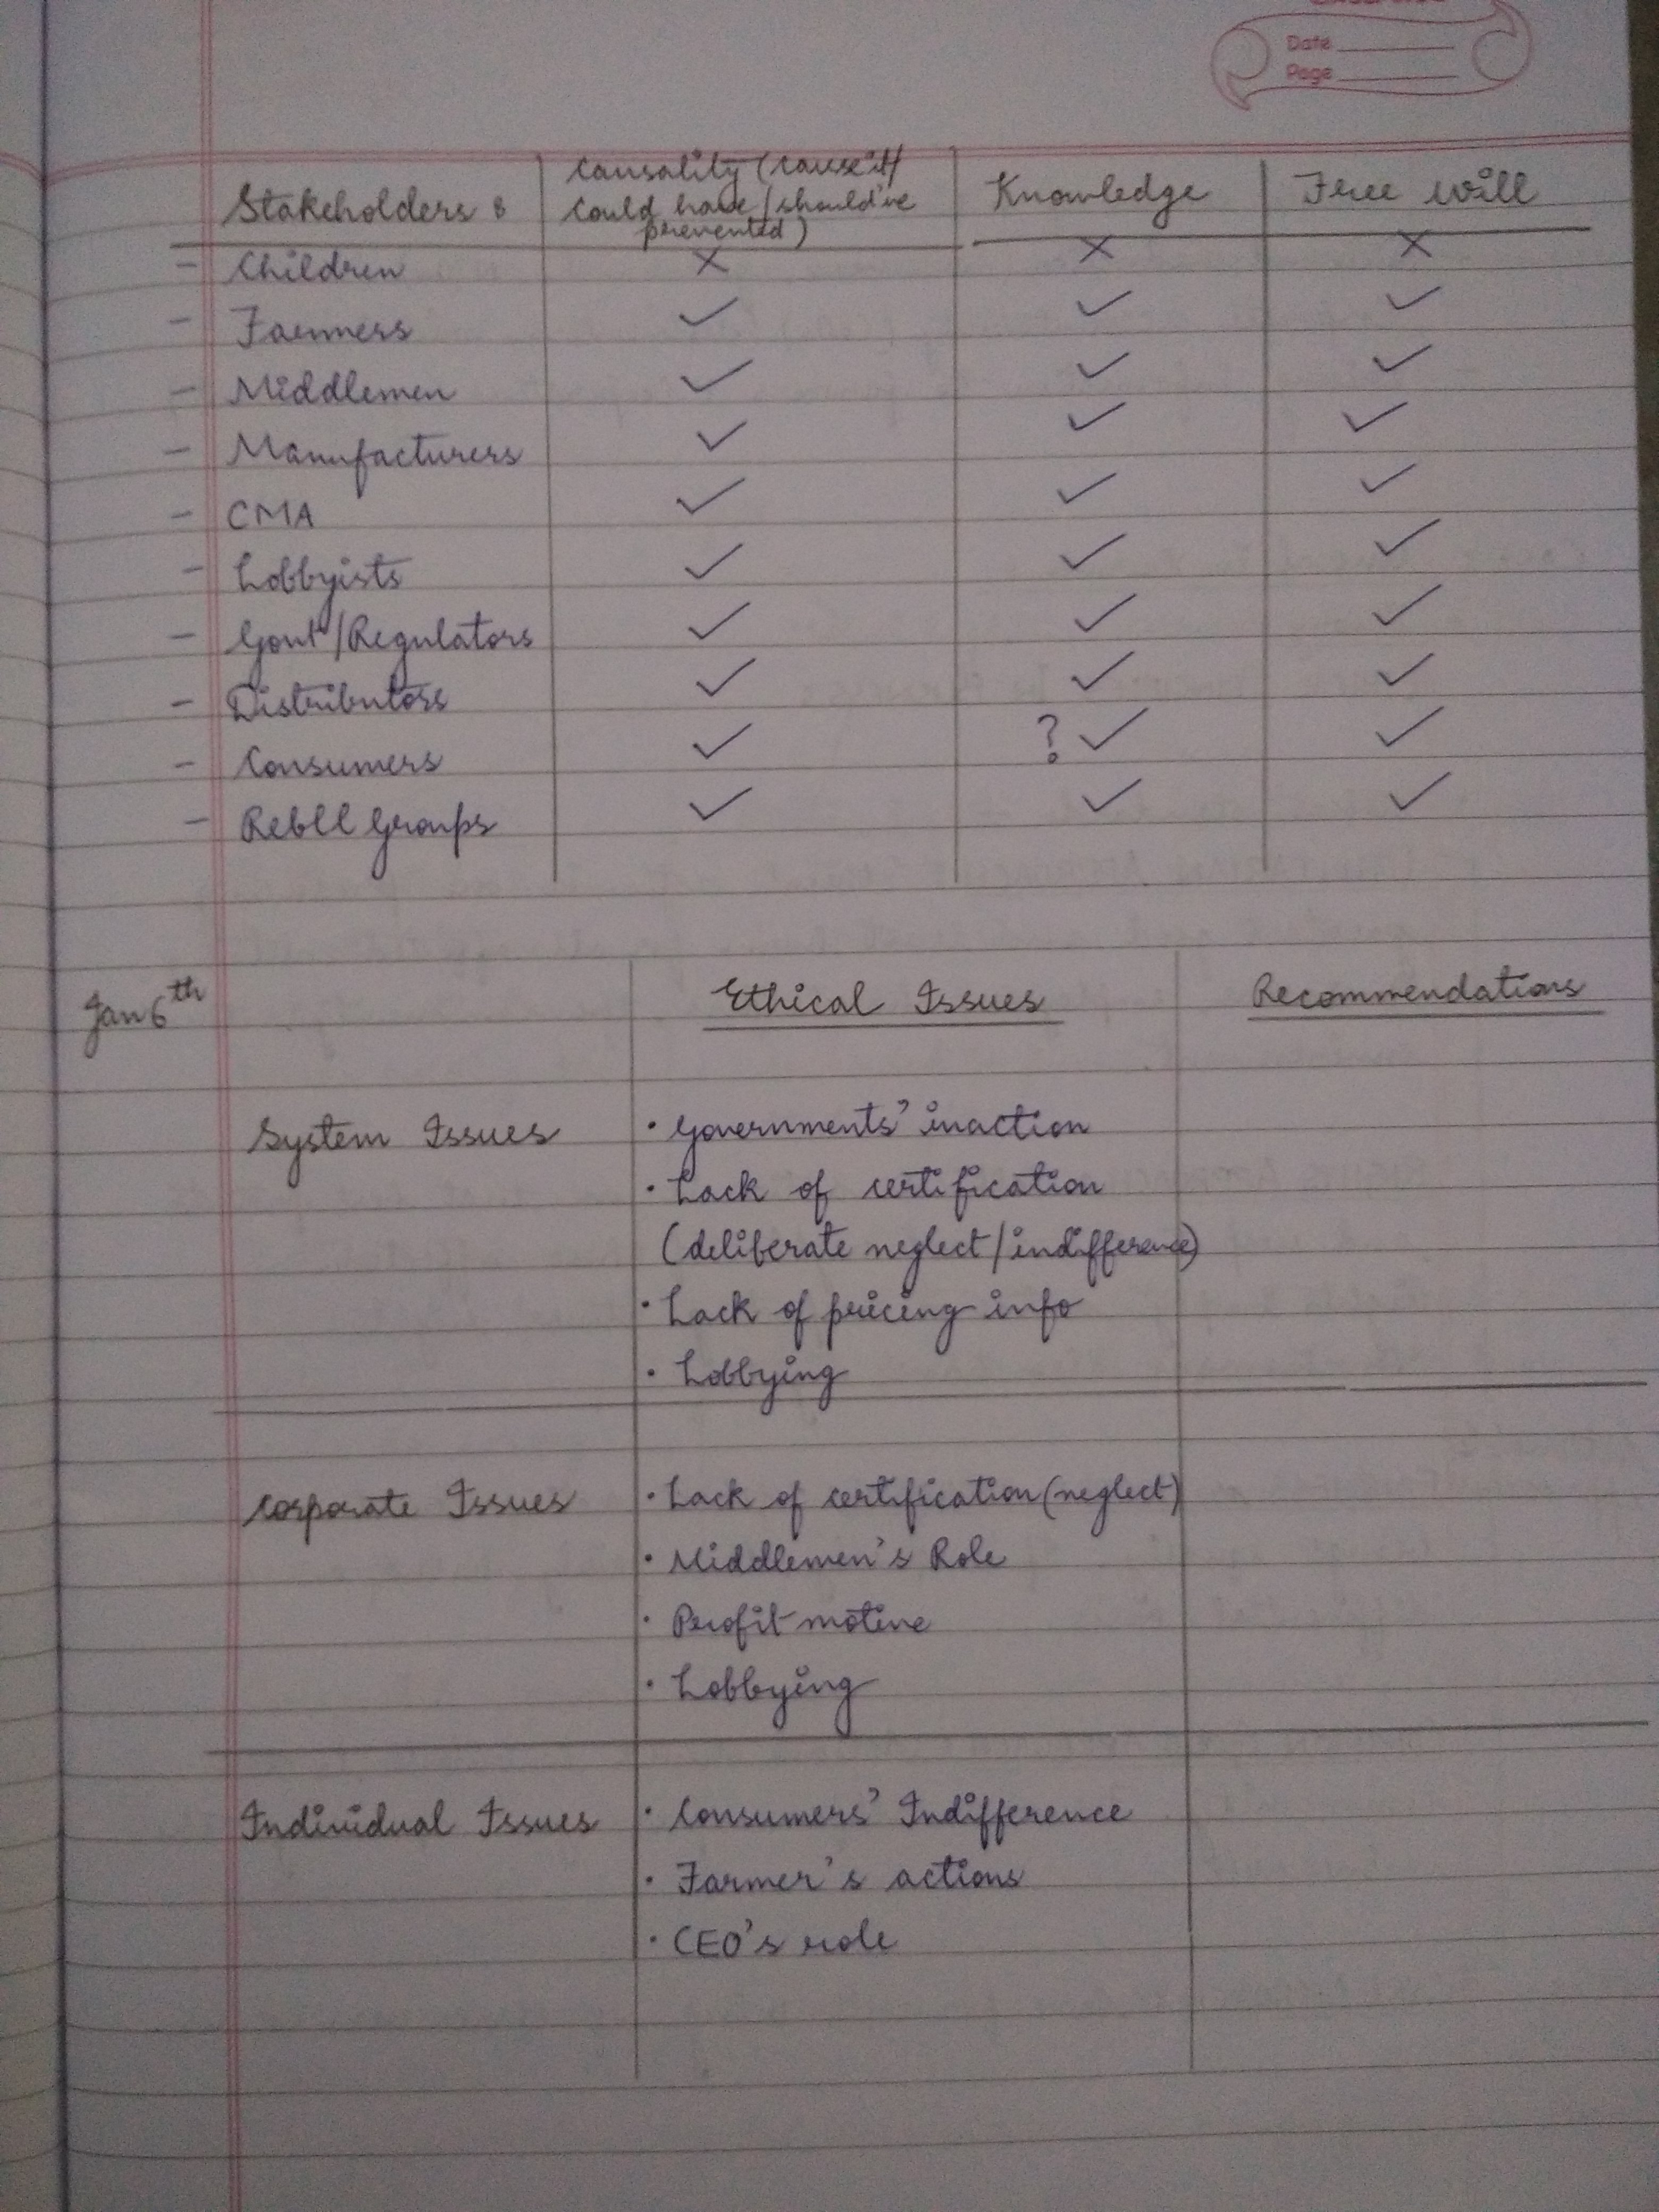 Date
Page
Stakeholders : | Causality (cause it/ could have/should've prevented) | Knowledge | Free will
- Children | × | × | ×
- Farmers | ✓ | ✓ | ✓
- Middlemen | ✓ | ✓ | ✓
- Manufacturers | ✓ | ✓ | ✓
- CMA | ✓ | ✓ | ✓
- Lobbyists | ✓ | ✓ | ✓
- Govt/Regulators | ✓ | ✓ | ✓
- Distributors | ✓ | ✓ | ✓
- Consumers | ✓ | ? ✓ | ✓
- Rebll Groups | ✓ | ✓ | ✓
Jan 6th | Ethical Issues | Recommendations
System Issues | • Governments' inaction
• Lack of certification
(deliberate neglect/indifference)
• Lack of pricing info
• Lobbying
Corporate Issues | • Lack of certification (neglect)
• Middlemen's Role
• Profit motive
• Lobbying
Individual Issues | • Consumers' Indifference
• Farmer's actions
• CEO's role